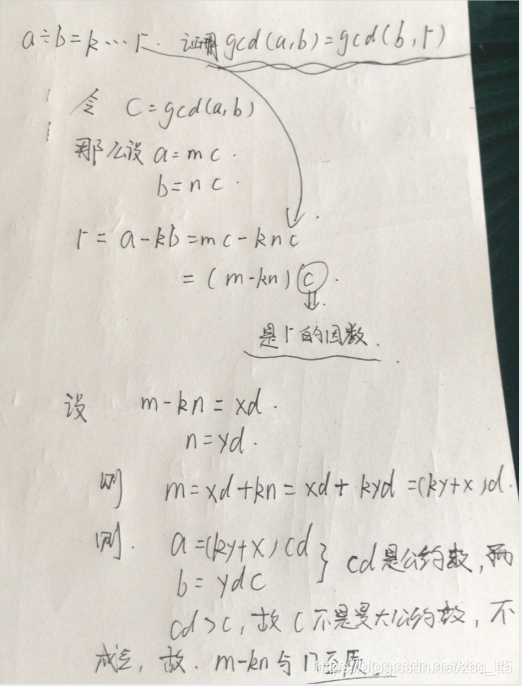 a÷b=k…r. 证明gcd(a,b)=gcd(b,r)
令 C=gcd(a,b)
那么设 a=mc.
b=nc.
r=a-kb=mc-knc
=(m-kn)c.
是r的因数.
设 m-kn=xd.
n=yd.
则 m=xd+kn=xd+kyd=(ky+x)d.
则. a=(ky+x)cd
b=ydc } cd是公约数,而
cd>c,故c不是最大公约数,不
成立,故.m-kn与n互质.